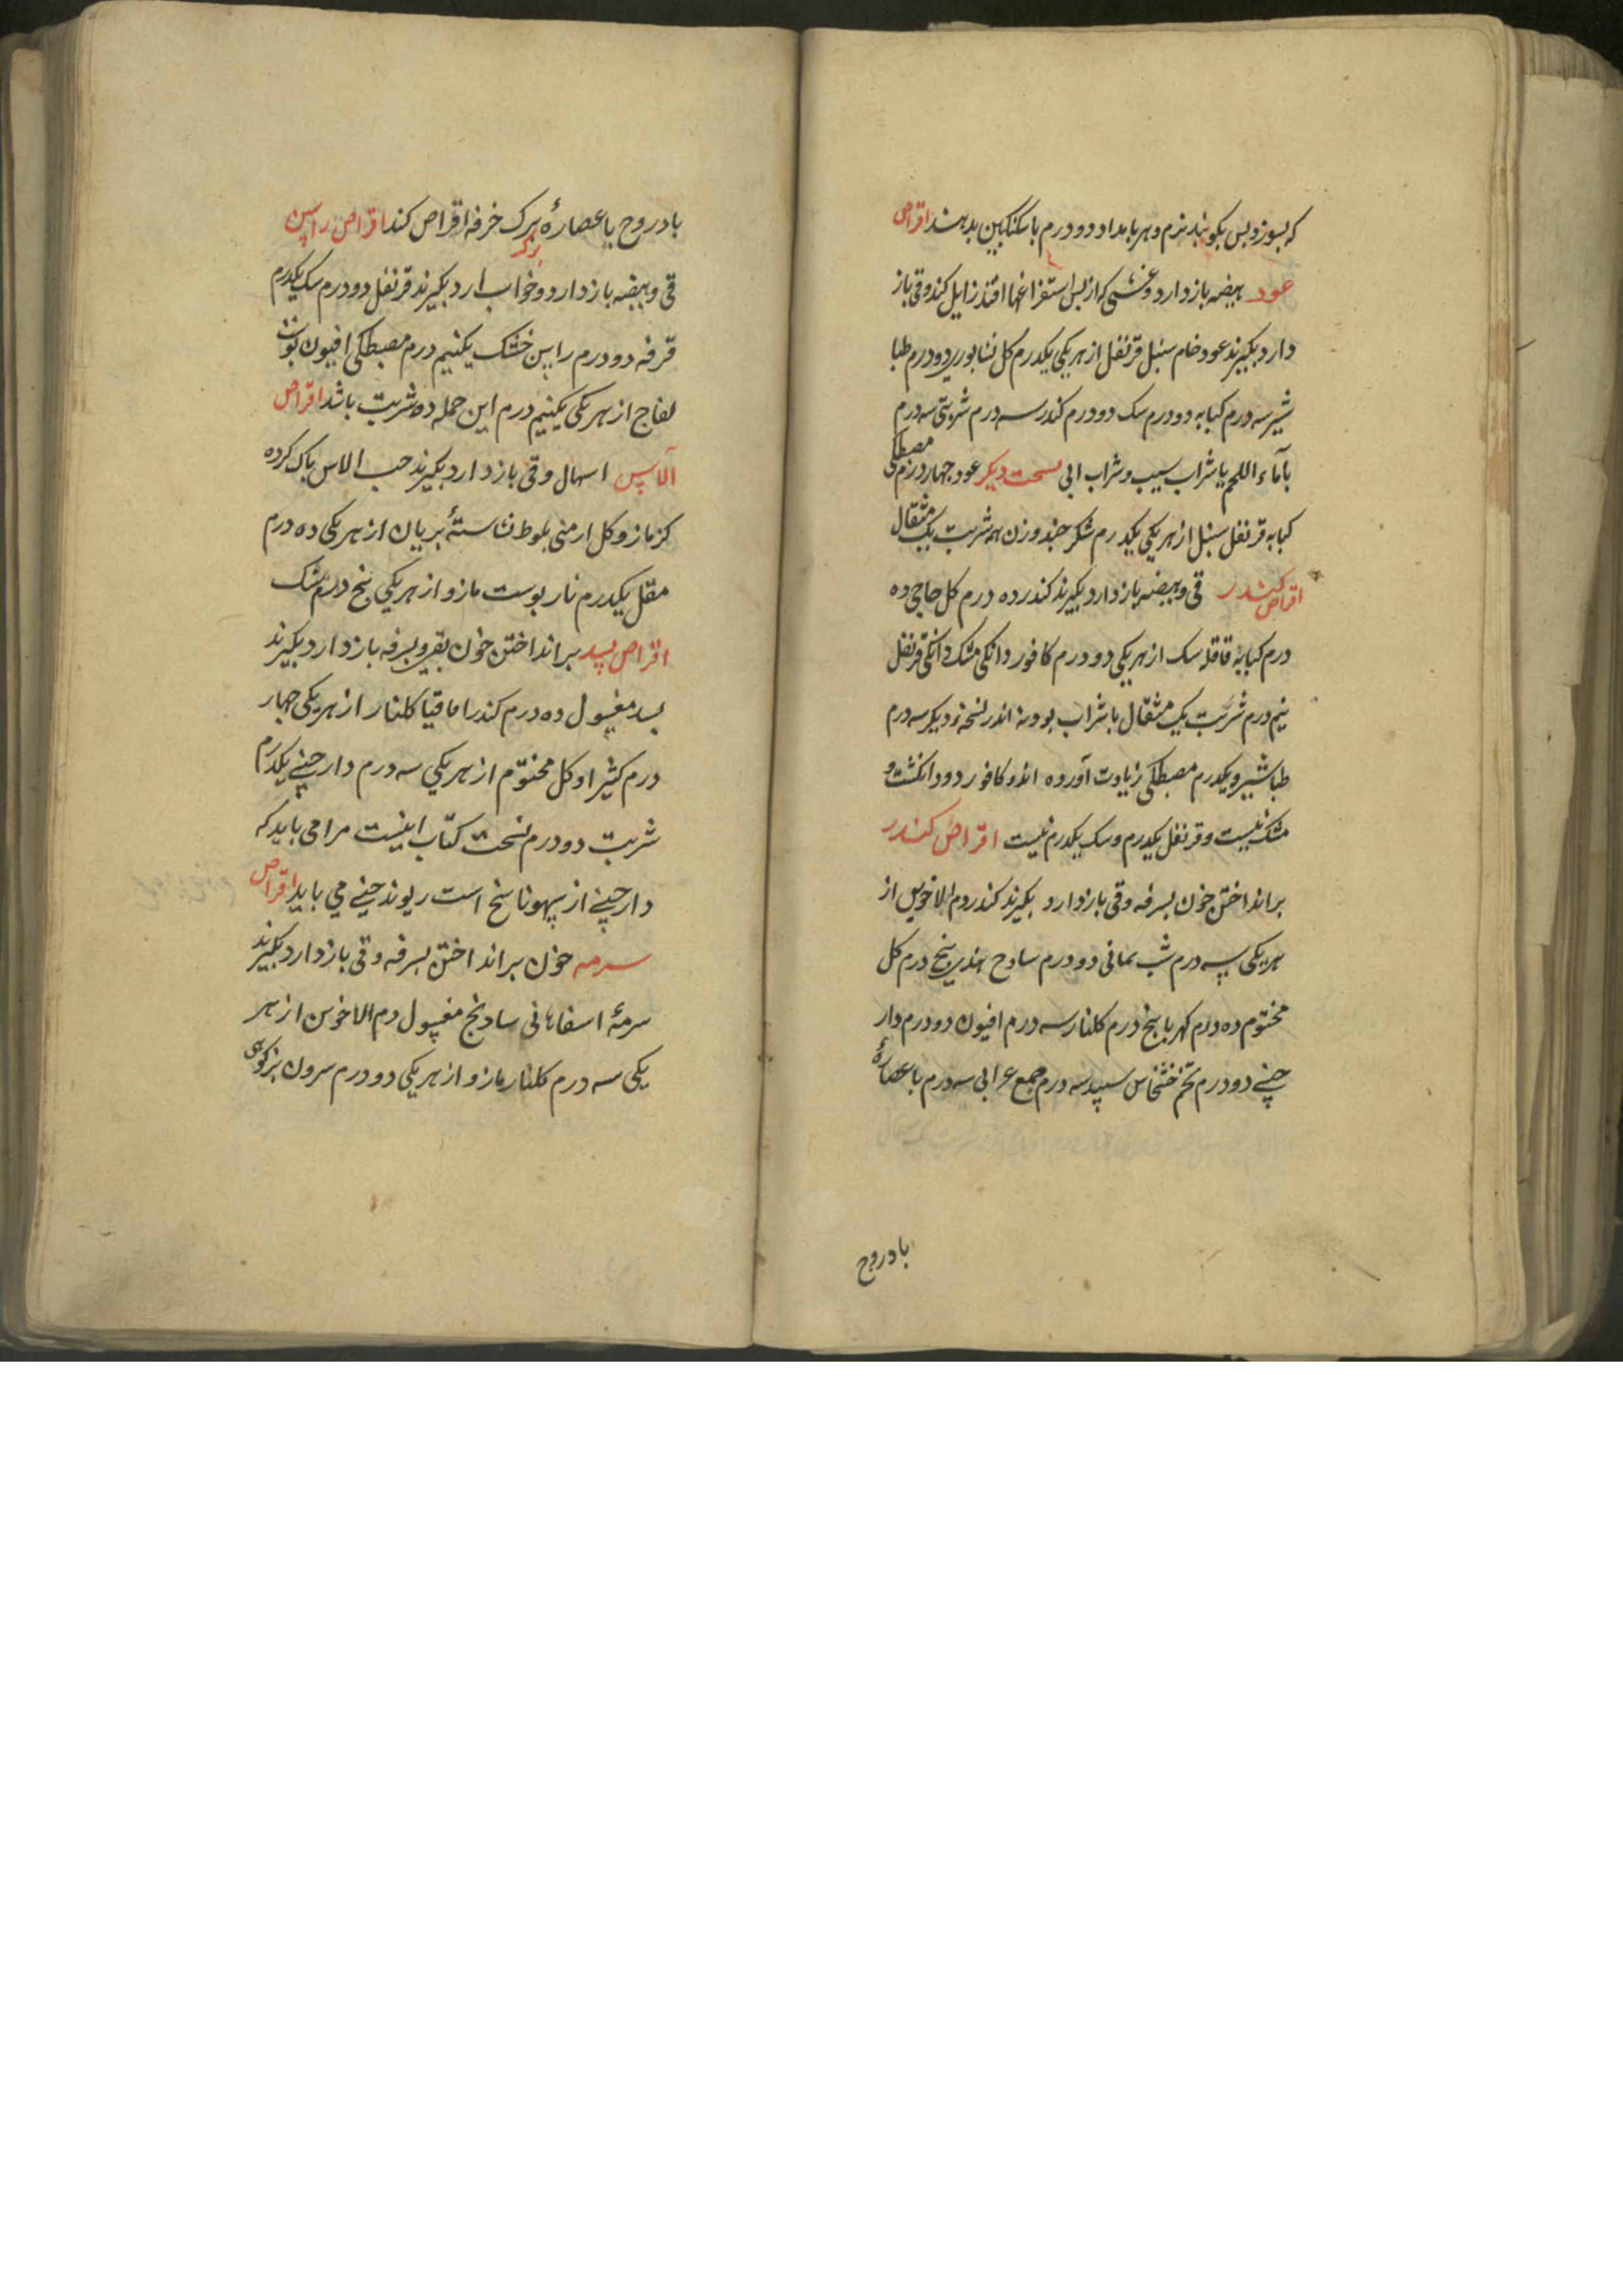 که بسوزد پس بکوبند نرم و هر بامداد دو درم با سکنکبین بدهند اقراص
عود هیضه باز دارد و غشی که از پس استفراغها افتد زایل کند و قی باز
دارد بکیرند عود خام سنبل قرنفل از هر یکی یکدرم کل نشابوری دو درم طبا
شیر سه درم کبابه دو درم سک دو درم کندر سه درم شربتی سه درم
با ماء اللحم یا شراب سیب و شراب ابی نسخت دیکر عود جهار درم مصطکی
کبابه قرنفل سنبل از هر یکی یکدرم شکر جند وزن همه شربت یک مثقال
اقراص کندر قی و هیضه باز دارد بکیرند کندر ده درم کل حاجی ده
درم کبابه قاقله سک از هر یکی دو درم کافور دانکی مشک دانکی قرنفل
نیم درم شربت یک مثقال با شراب بودنه اندر نسخه دیکر سه درم
طباشیر و یکدرم مصطکی زیادت آورده اند و کافور دو دانکست و
مشک نیست و قرنفل یکدرم و سک یکدرم نیست اقراص کندر
برانداختن خون بسرفه و قی باز دارد بکیرند کندر دم الاخوین از
هر یکی سه درم شب یمانی دو درم سادج هندی پنج درم کل
مختوم ده درم کهربا پنج درم کلنار سه درم افیون دو درم دار
چینی دو درم تخم خشخاش سپید سه درم صمغ عرابی سه درم با عصارهٔ
بادروج
بادروج با عصارهٔ برک خرفه اقراص کند اقراص راسن
برک
قی و هیضه باز دارد و خواب ارد بکیرند قرنفل دو درم سک یکدرم
قرفه دو درم راسن خشک یکنیم درم مصطکی افیون پوست
لفاح از هر یکی یکنیم درم این جمله ده شربت باشد اقراص
الآس اسهال و قی باز دارد بکیرند حب الاس باک کرده
کزمازو کل ارمنی بلوط نشاستهٔ بریان از هر یکی ده درم
مقل یکدرم نار پوست مازو از هر یکی پنج درم مشک
اقراص بسد برانداختن خون بقی و بسرفه باز دارد بکیرند
بسد مغسول ده درم کندر اقاقیا کلنار از هر یکی جهار
درم کثیرا و کل مختوم از هر یکی سه درم دارچینی یکدرم
شربت دو درم نسخت کتاب اینست مرا می باید که
دارچینی از سهو ناسخ است ریوند چینی می باید اقراص
سرمه خون برانداختن بسرفه و قی باز دارد بکیرند
سرمهٔ اسفاهانی سادنج مغسول دم الاخوین از هر
یکی سه درم کلنار مازو از هر یکی دو درم سرون بزکوهی